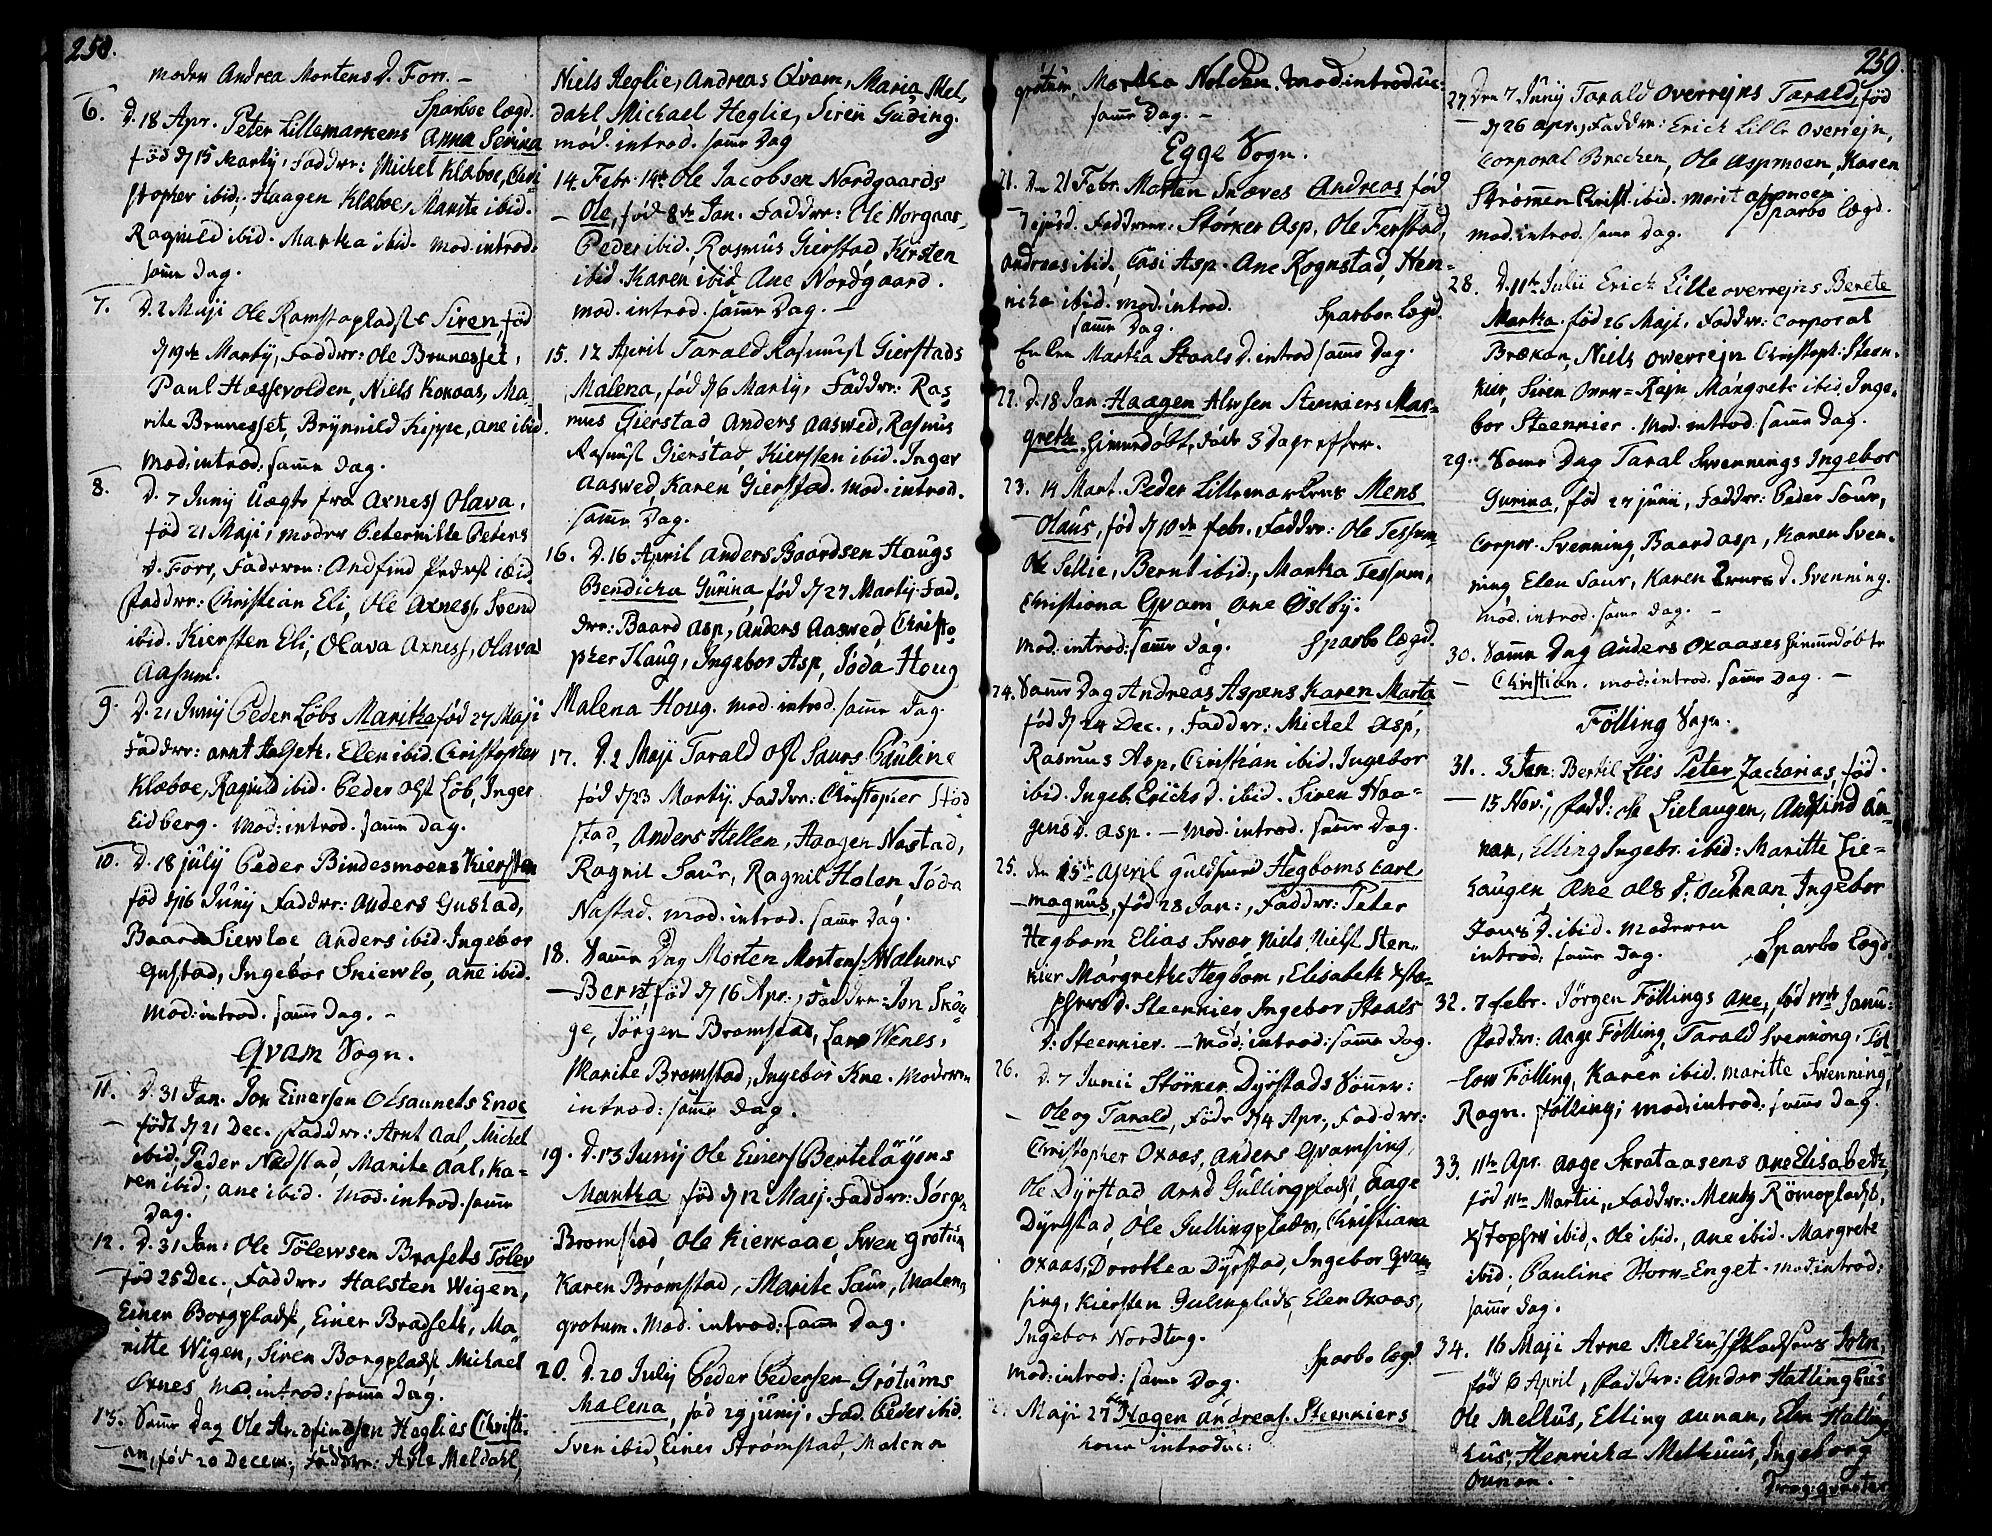 258.
moder Andrea Mortens D. Forr. –
Sparboe lægd.
6. D. 18 Apr. Peter Lillemarkens Anna Serina
fød d 15 Martij, Faddr: Michel Klæboe, Chri
stopher ibid, Haagen Klæboe, Marite ibid.
Ragnild ibid. Martha ibid. mod. introd.
samme Dag.
7. D. 2 Maji Ole Ramstaplads Siren, fød
d 19de Martij, Faddr: Ole Brunesset,
Paul Hassevolden, Niels Konaas, Ma-
rite Brunesset, Brynnild Kippe, ane ibid.
Mod: introd: samme Dag.
8. D. 7 Junij Uægte fra Axness Olava,
fød 21 Maji, moder Peternille Peters
D. Forr, Faderen: Andfind Peders ibid
Faddr: Christian Eli, Ole Axness, Svend
ibid. Kiersten Eli, Olava Axness, Olava
Aasum.
9. D. 21 Junij Peder Løbs Maritha fød 27 Maji
Faddr: arnt Helgeth. Elen ibid. Christopher
Klæboe, Ragnild ibid. Peder Ols Løb, Inger
Eidberg. Mod: introd. samme Dag.
10. D. 18 july Peder Bindesmoens Kiersten
fød d 16 Junij Faddr: Anders Gustad,
Baard Siewloe Anders ibid. Ingebor
Gustad, Ingebor Sniewlo, ane ibid.
Mod: introd. samme Dag. –
Qvam Sogn.
11. D. 31 Jan. Jon Einersen Olsaunets Enoc
født d 21 Dec. Faddr: Arnt Aal, Michel
ibid: Peder Nædstad, Marite Aal, Ka-
ren ibid; ane ibid. Mod. introd. samme
Dag.
12. D. 31 Jan: Ole Tølewsen Brasets Tølev
fød 25 Dec., Faddr. Halsten Wigen,
Einer Borgplads, Einer Bradsets, Ma
ritte Wigen, Siren Borgplads, Michael
Ornes, Mod, introd: samme Dag.
13. Samme Dag Ole Andfindsen Heglies Christi-
an, fød 20 Decem., Faddr: Atle Meldahl,
Niels Heglie, Andreas Qvam, Maria Mel,
dahl Michael Heglie, Siren Guding.
mod. introd. samme Dag
14. Febr. 14de Ole Jacobsen Nordgaards
Ole, fød 8de Jan. Faddr: Ole Norgaar,
Peder ibid, Rasmus Gierstad, Kirsten
ibid. Karen ibid Ane Nordgaard.
mod. introd. samme Dag. –
15. 12 April Tarald Rasmus Gierstads
Malena, fød d 6 Martij, Faddr: Ras
mus Gierstad Anders Aaswed, Rasmus
Rasmus Gierstad, Kiersten ibid. Inger
Aaswed, Karen Gierstad. Mod. introd.
samme Dag.
16. D. 16 April Anders Baardsen Haugs
Bendicka Gurina, fød d 27 Martij. Fad,
der: Baard Asp, Anders Aaswed, Christo
pher Haug, Ingebor Asp, Joda Houg
Malena Houg. Mod. introd. samme Dag.
17. D. 2 Maji Tarald Ols Saurs Pauline
fød d 23 Martij. Faddr: Christopher Stød
stad, Anders Hellen, Haagen Nastad,
Ragnil Saur, Ragnil Holen, Joda
Nastad. mod. introd. samme Dag.
18. Samme Dag Morten Mortens Walums
Bernt fød d 16 Apr., Faddr: Jon Skou
ge, Jørgen Bromstad, Lars Wenes,
Marite Bromstad, Ingebor Kne. Moderen
introd: samme Dag.
19. D. 13 Junij Ole Einers Bertelsøyens
Martha fød d 12 Maij. Faddr: Jørgen
Bromstad, Ole Kierkaae, Swen grotum
Karen Bromstad, Marite Saur, Malena
grotum. Mod. introd: samme Dag.
20. D. 20 July Peder Pedersen Grotums
Malena, fød 29 junij, Fad. Peder ibid.
Sven ibid, Einer Strømstad, Malena
259.
grotum, Martha Nolden. mod. introduc.
samme Dag. –
Egge Sogn.
21. Den 21 Febr. Morten Snæves Andreas fød
7 ejusd. Fadderne: Størker Asp, Ole Ferstad,
Andreas ibid. Casi Asp. Ane Rognstad, Hen-
richa ibid. mod. introd. Sparboe Lægd.
samme Dag.
Enken Martha Staals D. introd samme Dag.
22. D. 18 Jan Haagen Alwsen Stenkiers Mar-
grethe, hiemmedøbt, døde 3 Dage efter.
23. 14 Mart. Peder Lillemarkens Mens
Olaus, fød d 10de febr., Faddr: Ole Tessem,
Ole Selie, Bernt ibid:, Martha Tessem,
Christiana Qvam, ane Østby.
Mod. introd: samme Dag. Sparbo Lægd.
24. Samme Dag Andreas Aspens Karen Marta
fød d 24 Dec., Faddr: Michel Asp,
Rasmus Asp, Christian ibid. Ingebor
ibid. Ingeb. Ericks D. ibid. Siren Haa-
gens D. Asp. – Mod. introd. samme Dag.
25. den 15de April guldsmed Hegboms Carl
magnus, fød 28 Jan:, Faddr: Peter
Hegbom Elias Swær Niels Niels Sten-
kier Margrethe Hegbom, Elisabeth Xsto-
phers D. Steenkier Ingebor Staals
D: Steenkier. – Mod: introd: samme Dag.
26. D. 7 Junii Størker Dyrstads Sønner:
Ole og Tarald, fødde d 4 Apr., Faddr:
Christopher Oxaas, Anders Qvamsing,
Ole Dyrstad Arnd Gullingplads, Aage
Dyrstad, Ole Gullingpladsen, Christiana
Oxaas, Dorothea Dyrstad, Ingebor Qvam
sing, Kiersten Gulingplads, Elen Oxaas,
Ingebor Nordtug.
Mod: introd: samme Dag. Sparbo Lægd
Maji 27de Hagen Andreas. Steenkiers
kone introduc:
27. Den 7 Junij Tarald Overrejns Tarald, fød
d 26 apr., Faddr: Erick Lille Overrejn,
Corporal Brecken, Ole Aspmoen, Karen
Strømmen Christ. ibid. Marit aspmoen
Mod. introd. samme Dag. Sparbo Lægd.
28. D. 11te Julii Erich Lille overrejns Berete
Martha. fød 26 Maji. Faddr: Corporal
Brækan, Niels Overrejn Christoph: Steen-
kier, Siren Over=Rejn Margrete ibid. Inge,
bor Steenkier. Mod. introd. samme Dag.
29. Samme Dag Taral Swennings Ingebor
Gurina, fød 27 junii, Faddr: Peder Saur,
Corpor. Svenning, Baard Asp, Karen Sven,
ning Elen Saur, Karen D. Svenning.
Mod. introd. samme Dag. –
30. Samme Dag Anders Oxaases hiemmedøbte
Christian. mod: introd. samme Dag. –
Følling Sogn.
31. 3 Jan: Bertil Lies Peter Zacharias, fød
15 Nov:, fadd: ole Lielaugen, Andfind Au-
nan, Elling Ingebr. ibid: Maritte Lie-
haugen, Ane Ols D. Ounan, Ingebor
Jons D. ibid. Moderen
introd: samme Dag. Sparbo Lægd
32. 7 febr. Jørgen Føllings Ane, fød 17de Janu:
Faddr: Aage Følling, Tarald Svenning, Tøl
low Følling, Karen ibid. maritte Swenning,
Ragn. følling; mod: introd: samme Dag.
33. 11te Apr. Aage Skrataasens Ane Elisabeth,
fød 11te Martii, Faddr: Mentz Römoplads,
Xstopher ibid,. Ole ibid., ane ibid. Margrete
ibid, Pauline Horn=Enget. mod. introd:
samme Dag.
34. 16 Maji Arne Melhus Pladsens John
fød 6 April, Faddr: Ander Hallinghus
Ole Melhus, Elling aunan, Elen Halling
hus, Henricha Melhuus, Ingeborg
Ounan.